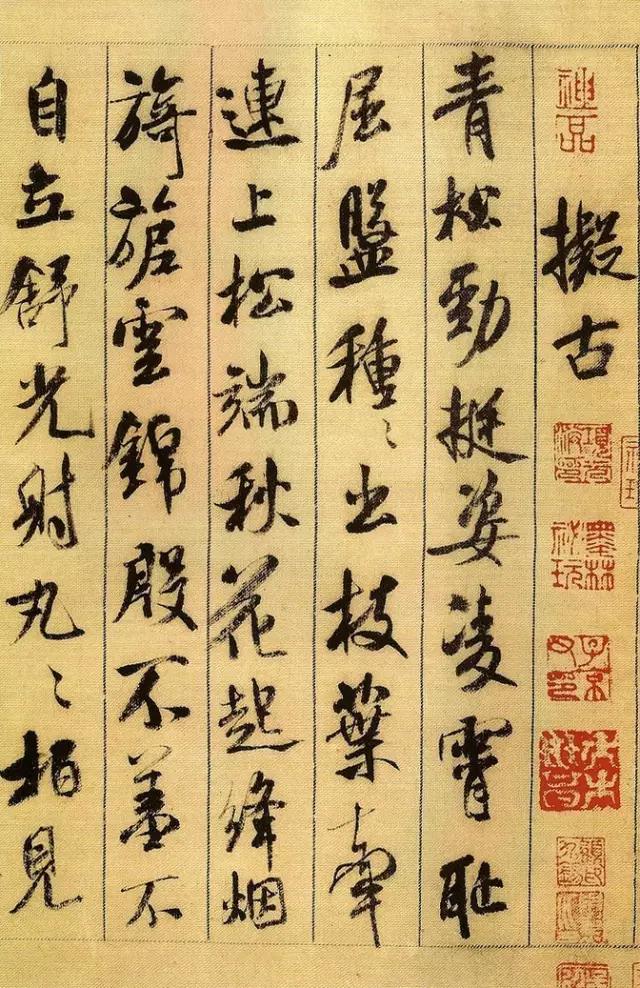 神品
擬古
青松勁挺姿凌霄耻
屈盤種〻出枝葉牽
連上松端秋花起絳烟
旖旎雲錦殷不羞不
自立舒光射丸〻柏見
墨林祕玩